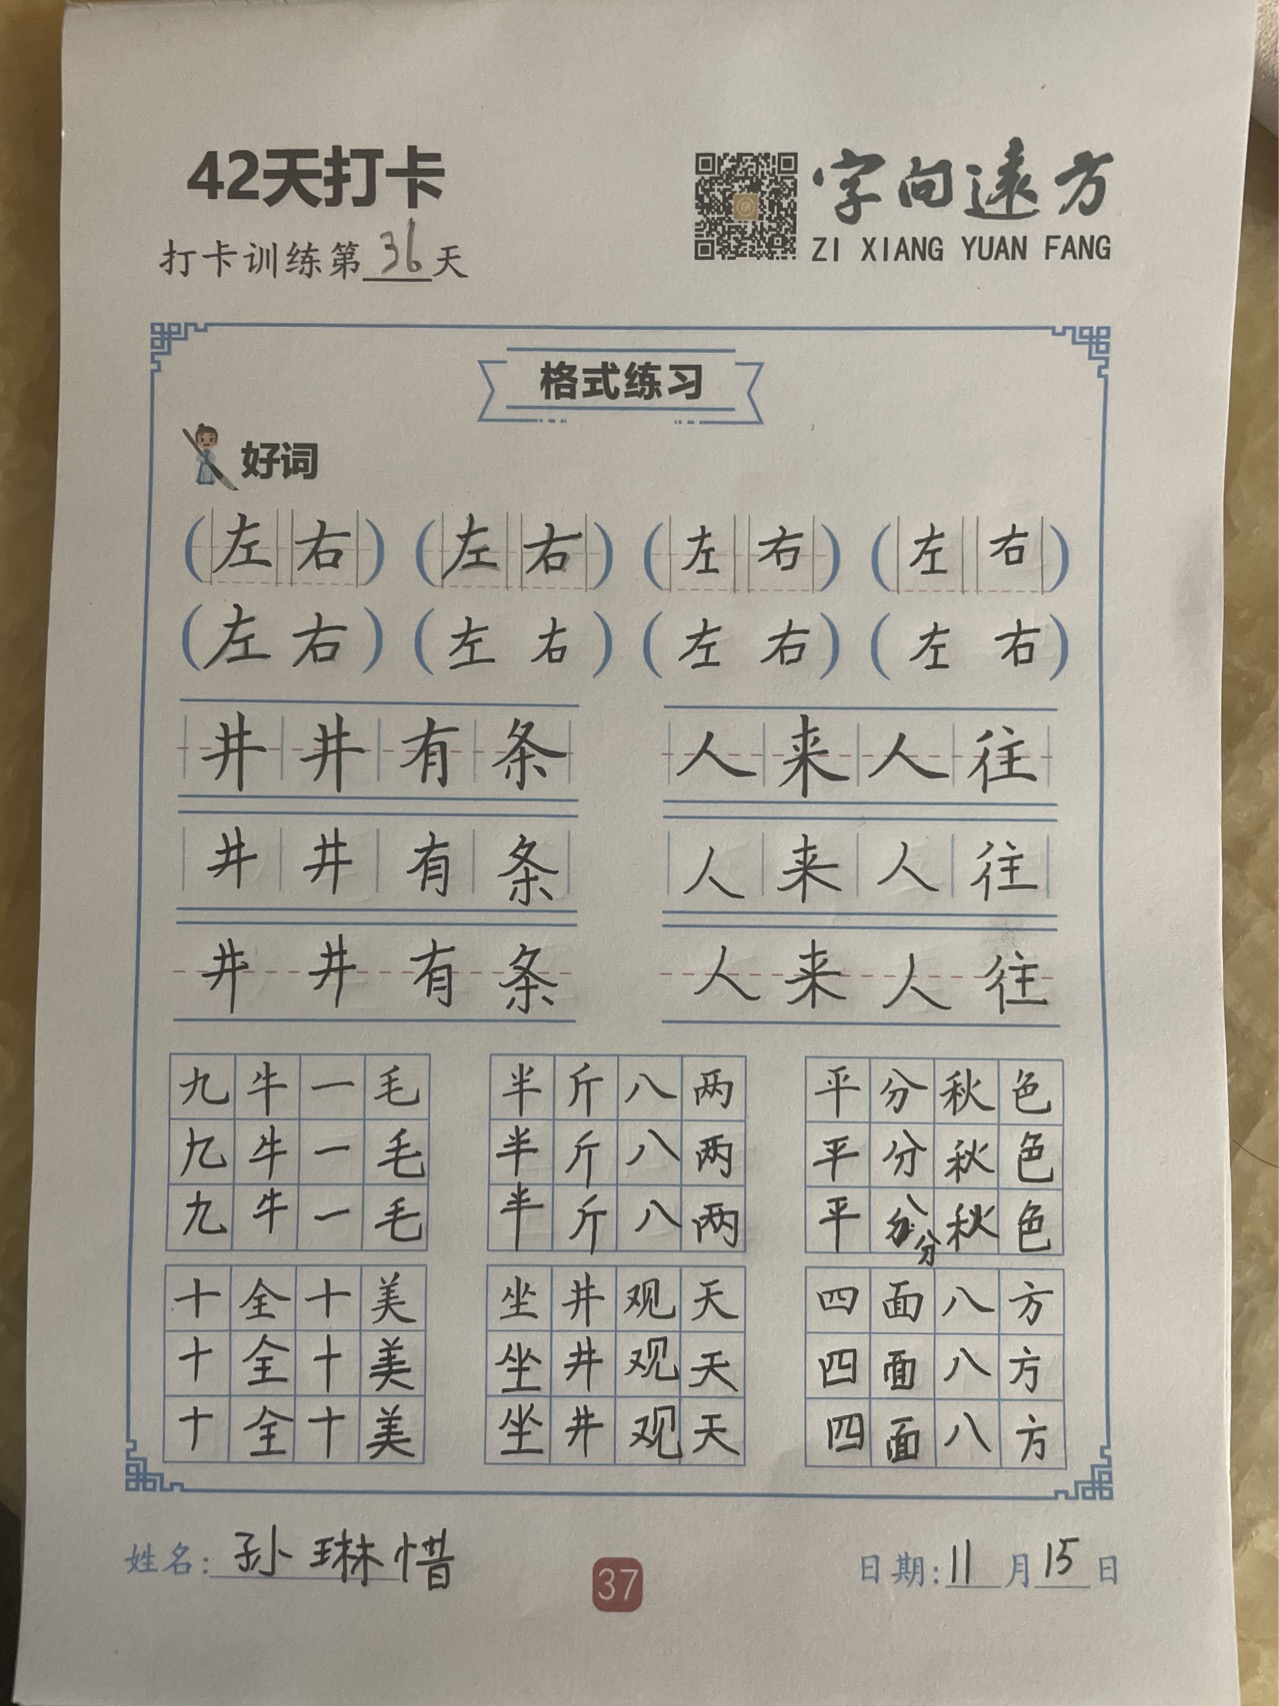 42天打卡
字向远方
打卡训练第36天
ZI XIANG YUAN FANG
格式练习
好词
(左右) (左右) (左右) (左右)
(左右) (左右) (左右) (左右)
井井有条 人来人往
井井有条 人来人往
井井有条 人来人往
九牛一毛 半斤八两 平分秋色
九牛一毛 半斤八两 平分秋色
九牛一毛 半斤八两 平分秋色
十全十美 坐井观天 四面八方
十全十美 坐井观天 四面八方
十全十美 坐井观天 四面八方
姓名:孙琳惜 37 日期:11月15日